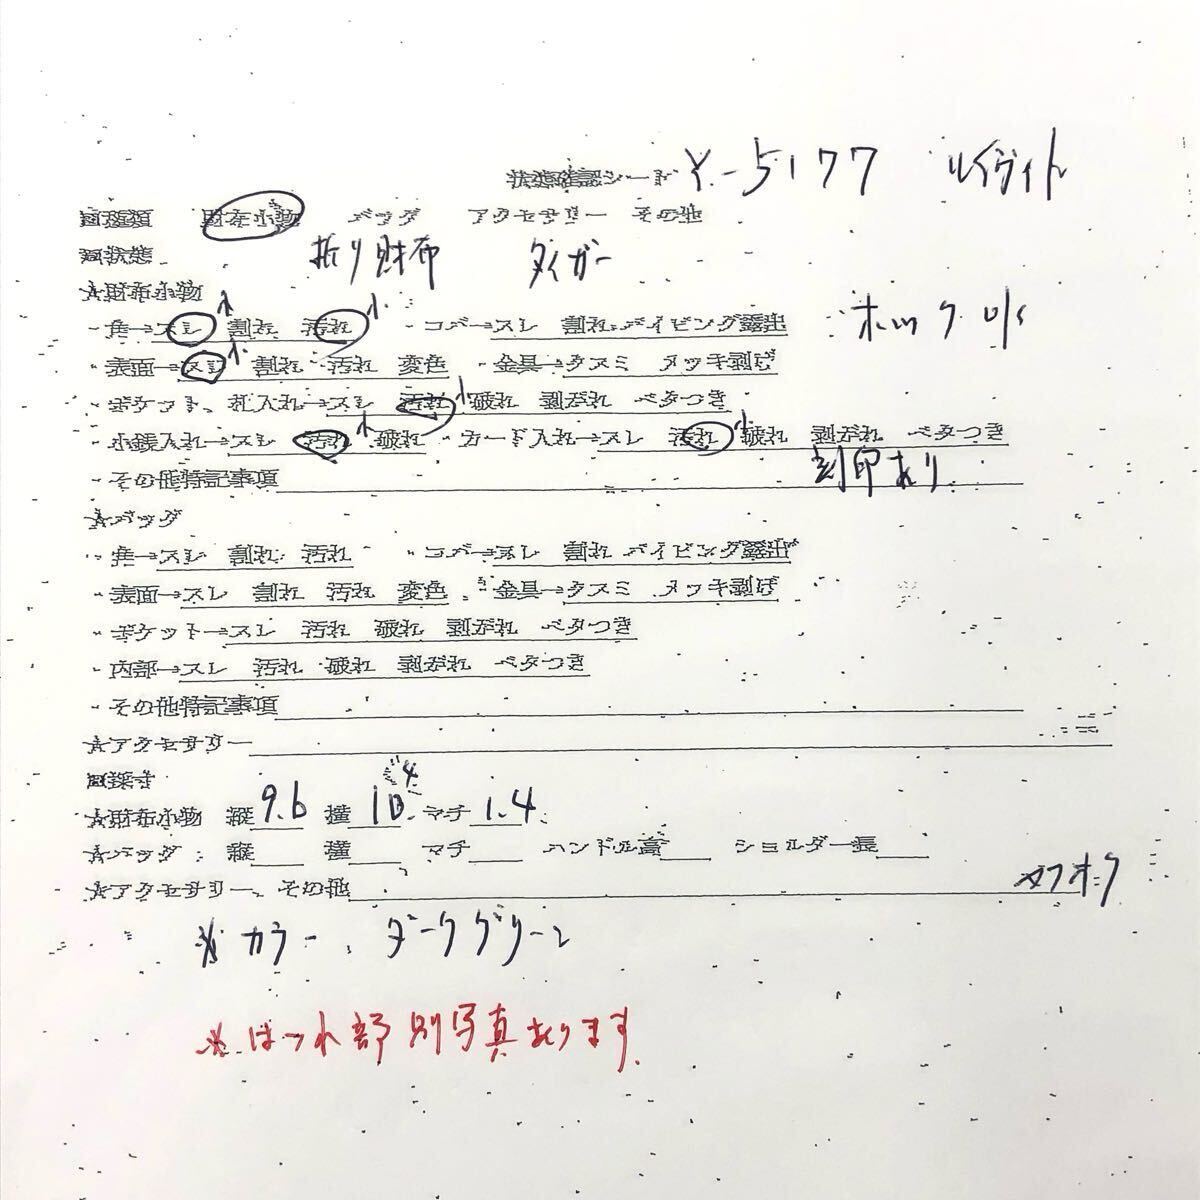 状態確認シート Y-5177 ルイヴィト
□種類 財布小物 バッグ アクセサリー その他
□状態 折り財布 タイガー
☆財布小物
・角→スレ 小 割れ 汚れ 小 ・コバ→スレ 割れ パイピング露出 ホック
・表面→スレ 小 割れ 汚れ 変色 ・金具→クスミ メッキ剥げ
・ポケット、札入れ→スレ 汚れ 小 破れ 剥がれ ベタつき
・小銭入れ→スレ 汚れ 小 破れ ・カード入れ→スレ 汚れ 小 破れ 剥がれ ベタつき
・その他特記事項 刻印あり
☆バッグ
・角→スレ 割れ 汚れ ・コバ→スレ 割れ パイピング露出
・表面→スレ 割れ 汚れ 変色 ・金具→クスミ メッキ剥げ
・ポケット→スレ 汚れ 破れ 剥がれ ベタつき
・内部→スレ 汚れ 破れ 剥がれ ベタつき
・その他特記事項
☆アクセサリー
□採寸
☆財布小物 縦 9.6 横 10.4 マチ 1.4
☆バッグ：縦 横 マチ ハンドル高 ショルダー長
☆アクセサリー、その他 ヤフオク
※カラー、ダークグリーン
※ほつれ部別写真あります